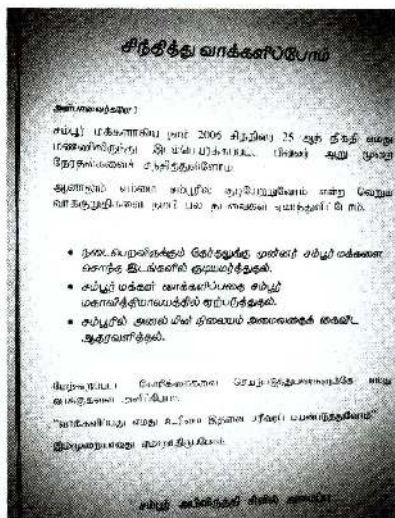 சிந்தித்து வாக்களிப்போம்
அன்பானவர்களே!
சம்பூர் மக்களாகிய நாம் 2006 சித்திரை 25 ஆந் திகதி எமது
மண்ணிலிருந்து இடம்பெயர்க்கப்பட்ட பின்னர் ஆறு
சந்தித்துள்ளோம்
ஆனாலும் எம்மை சம்பூரில் குடியேற்றுவோம் என்ற வெறும்
வாக்குறுதிகளை நம்பி பல தடவைகள் ஏமாந்துவிட்டோம்.
• நடைபெறவிருக்கும் தேர்தலுக்கு முன்னர் சம்பூர் மக்களை
சொந்த இடங்களில் குடியமர்த்துதல்.
• சம்பூர் மக்கள் வாக்களிப்பதை சம்பூர்
மகாவித்தியாலயத்தில் ஏற்படுத்துதல்.
• சம்பூரில் அனல் மின் நிலையம் அமைவதைக் கைவிட
ஆதரவளித்தல்.
மேற்கூறப்பட்ட கோரிக்கைகளை எமது
வாக்குகளை அளிப்போம்.
"வாக்களிப்பது எமது உரிமை இதனை சரிவரப் பயன்படுத்துவோம்"
இம்முறையாவது ஏமாறாதிருப்போம்.
சம்பூர் அபிவிருத்தி சிவில் அமைப்பு